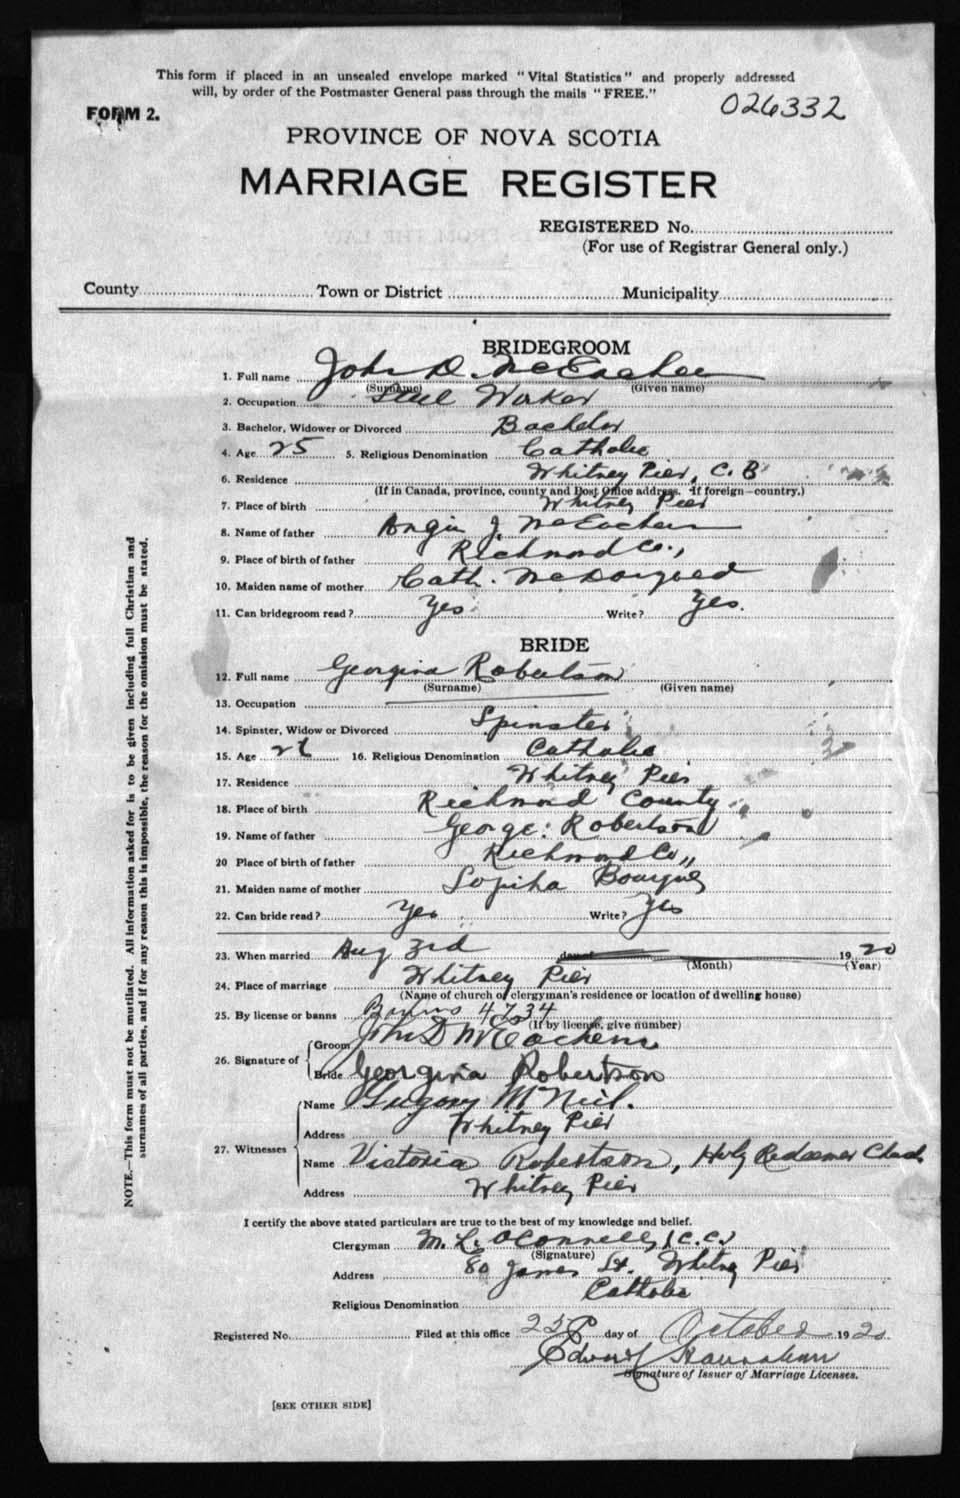 This form if placed in an unsealed envelope marked "Vital Statistics" and properly addressed
will, by order of the Postmaster General pass through the mails "FREE."
026332
FORM 2.
PROVINCE OF NOVA SCOTIA
MARRIAGE REGISTER
REGISTERED No.
(For use of Registrar General only.)
County Town or District Municipality
BRIDEGROOM
1. Full name John D. McEachen
(Surname) (Given name)
2. Occupation Steel Worker
3. Bachelor, Widower or Divorced Bachelor
4. Age 25 5. Religious Denomination Catholic
6. Residence Whitney Pier, C. B
(If in Canada, province, county and Post Office address. If foreign—country.)
7. Place of birth Whitney Pier
8. Name of father Angus J. McEachern
9. Place of birth of father Richmond Co.,
10. Maiden name of mother Cath. McDougald
11. Can bridegroom read? Yes Write? Yes.
BRIDE
12. Full name Georgina Robertson
(Surname) (Given name)
13. Occupation
14. Spinster, Widow or Divorced Spinster
15. Age 16. Religious Denomination Catholic
17. Residence Whitney Pier
18. Place of birth Richmond County
19. Name of father George Robertson
20 Place of birth of father Richmond Co,,
21. Maiden name of mother
22. Can bride read? Yes Write? Yes
23. When married Aug 3rd day of 1920
(Month) (Year)
24. Place of marriage Whitney Pier
(Name of church or clergyman's residence or location of dwelling house)
25. By license or banns Banns 4734
(If by license, give number)
26. Signature of Groom John D McEachern
Bride Georgina Robertson
27. Witnesses Name Gregory McNeil.
Address Whitney Pier
Name Victoria Robertson, Holy Redeemer
Address Whitney Pier
I certify the above stated particulars are true to the best of my knowledge and belief.
Clergyman M. L. O'Connell, (C.C.)
(Signature)
Address 80 James St. Whitney Pier
Religious Denomination Catholic
Registered No. Filed at this office 25 day of October 1920
Edward
Signature of Issuer of Marriage Licenses.
[SEE OTHER SIDE]
NOTE.—This form must not be mutilated. All information asked for is to be given including full Christian and
surnames of all parties, and if for any reason this is impossible, the reason for the omission must be stated.